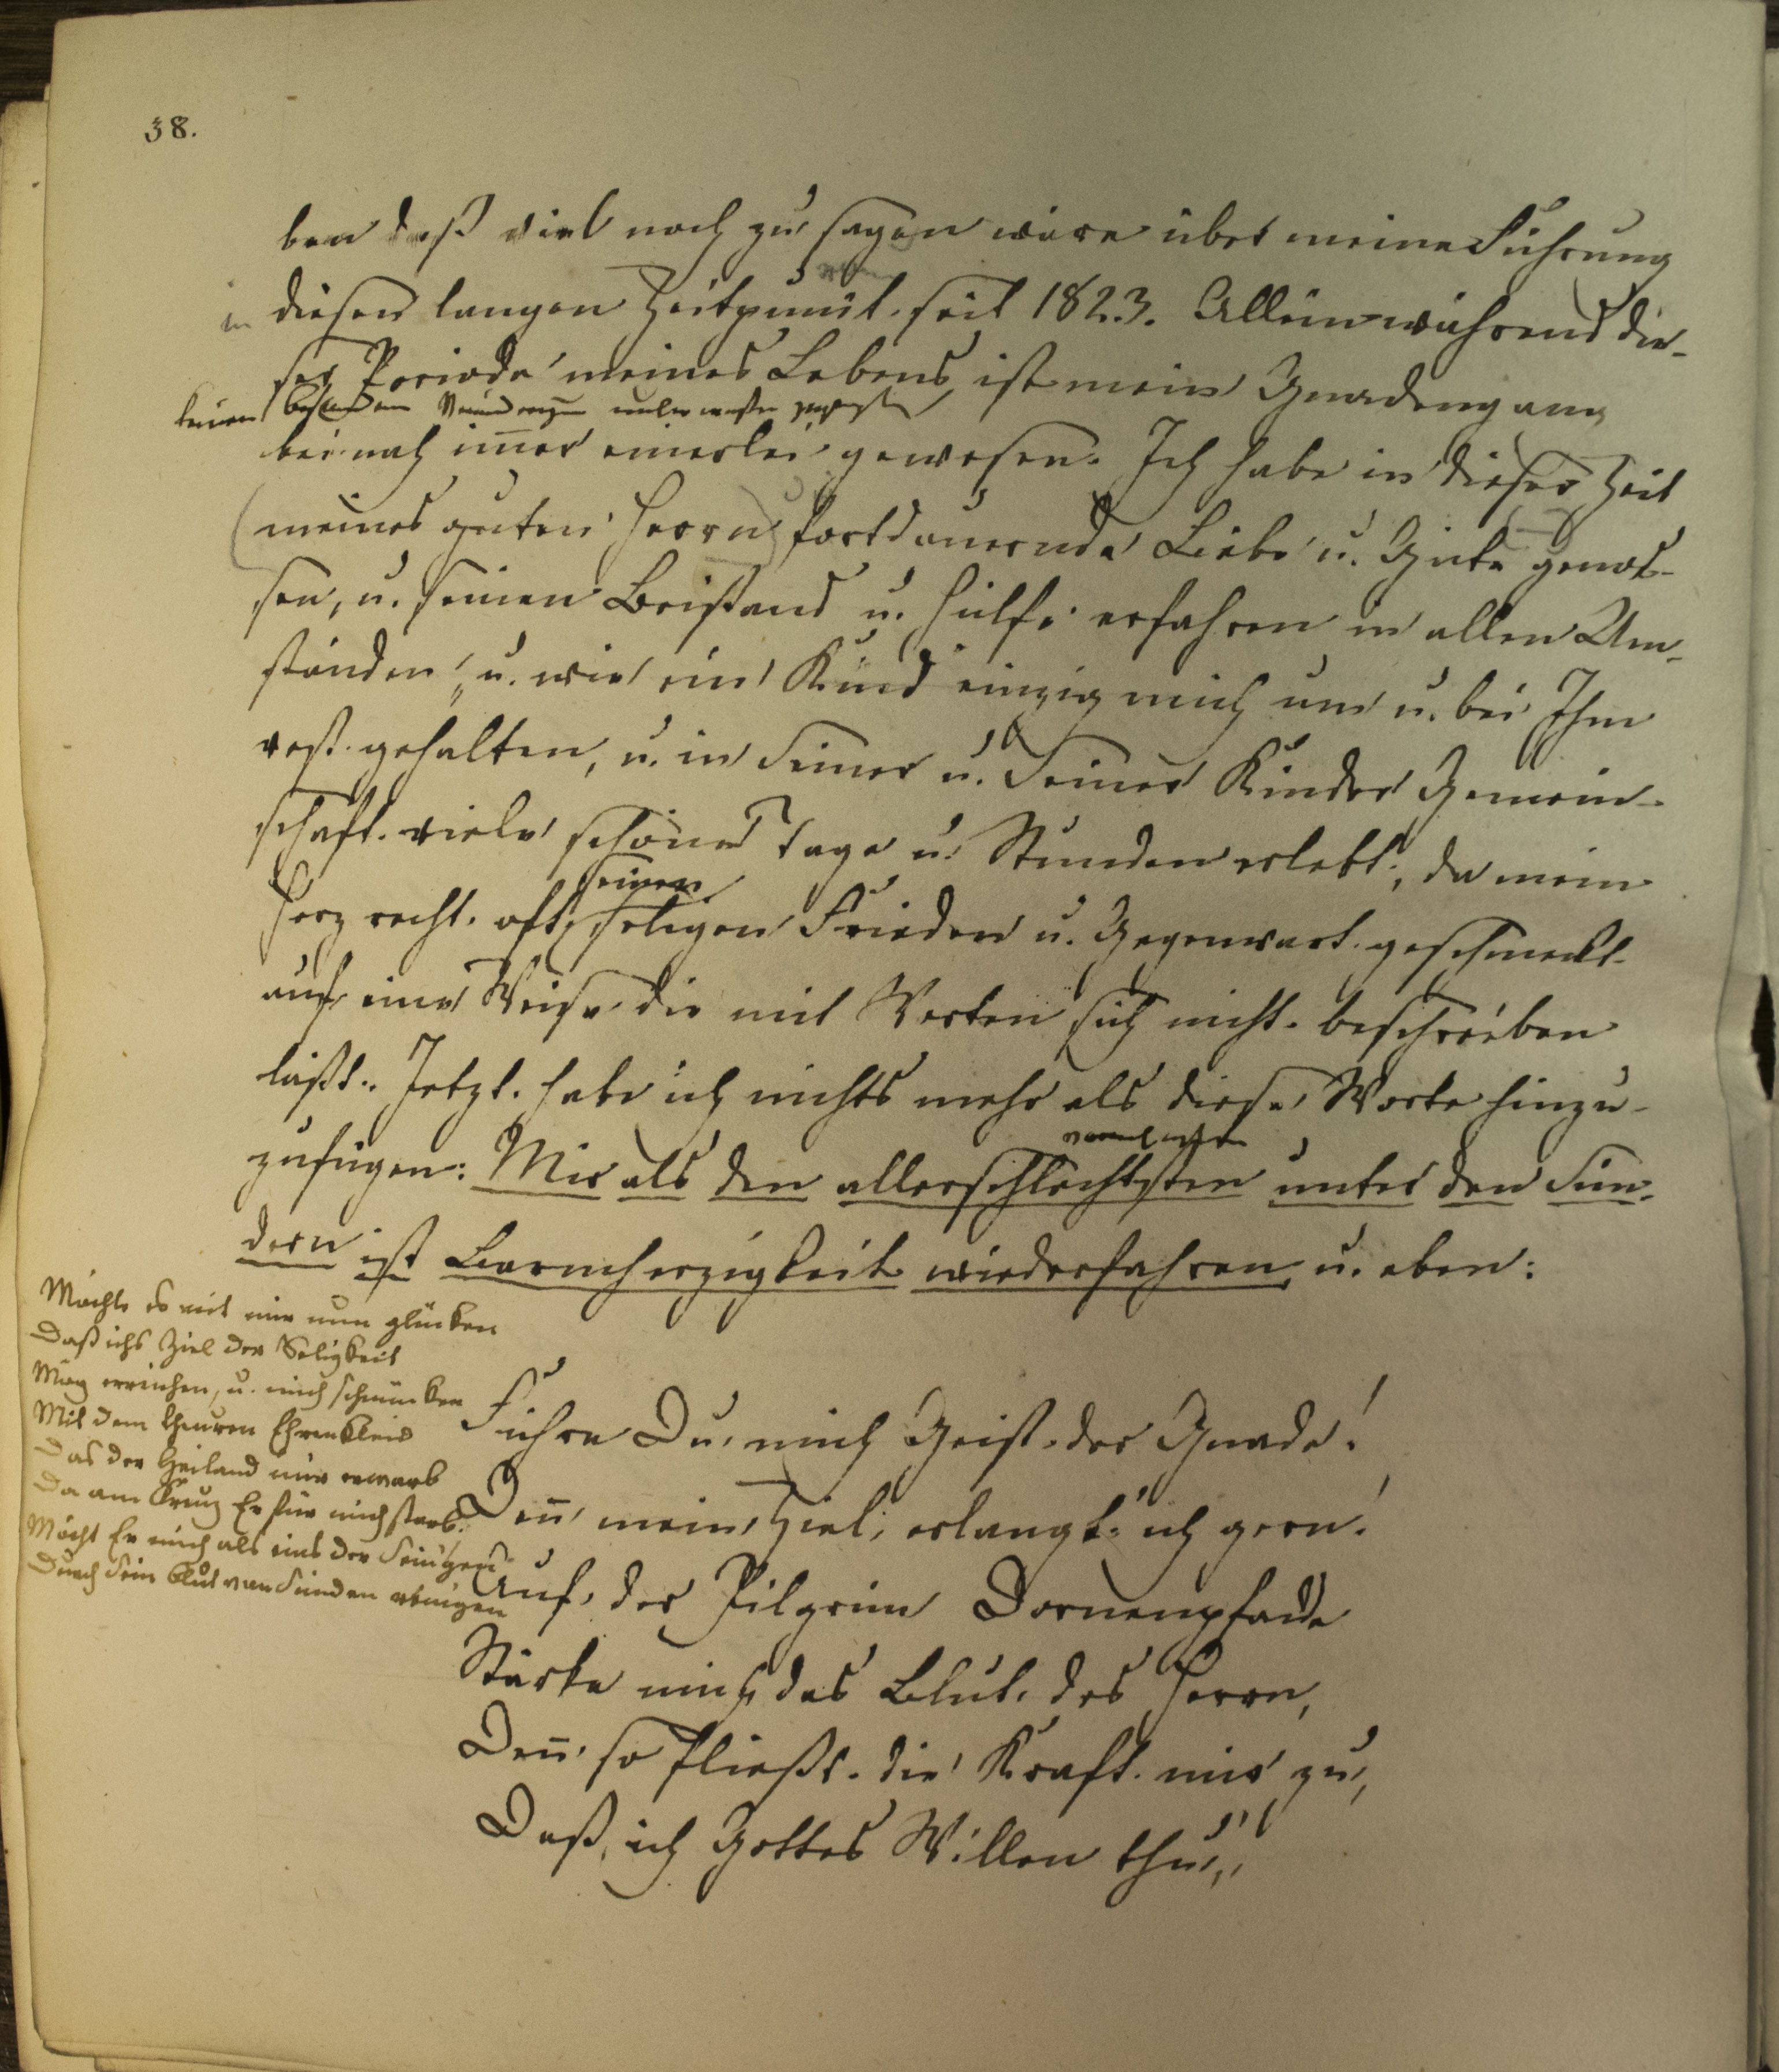 38.
ben daß viel noch zu sagen wäre über meine Führung
in diesen langen Zeitpunkt seit 1823. Allein während die-
ser Periode meines Lebens ist mein Gnadengang
keinen besondern Veränderungen unterworfen gewesen
beinah im̅er einerlei gewesen. Ich habe in dieser Zeit
(meines guten Herrn) fortdauernde Liebe u. Güte genos-
sen, u. seinen Beistand u. Hülfe erfahren in allen Um-
ständen, u. wie ein Kind einzig mich um u. bei Ihm
vest gehalten, u. in Seiner u. Seiner Kinder Gemein-
schaft viele schöne Tage u. Stunden erlebt, da mein
seinen
Herz recht oft seligen Frieden u. Gegenwart geschmeckt
auf eine Weise die mit Worten sich nicht beschreiben
läßt. Jetzt habe ich nichts mehr als diese Worte hinzu-
zufügen: Mir als den allerschlechtsten unter den Sün-
dern ist Barmherzigkeit wiederfahren u. eben:
Möchte es mit mir nun glücken
Daß ichs Ziel der Seligkeit
Mög erreichen, u. mich schmücken
Mit dem theuren Ehrenkleid
Das der Heiland mir erwarb
Da am Kreuz Er für mich starb.
Möcht Er mich als eins der Seinigen
Durch Sein Blut von Sünden reinigen
Führe Du mich Geist der Gnade!
Den̅ mein Ziel erlangt' ich gern!
Auf der Pilgrim Dornenpfade
Stärke mich das Blut des Herrn,
Den̅ so fließt die Kraft mir zu,
Daß ich Gottes Willen thu"